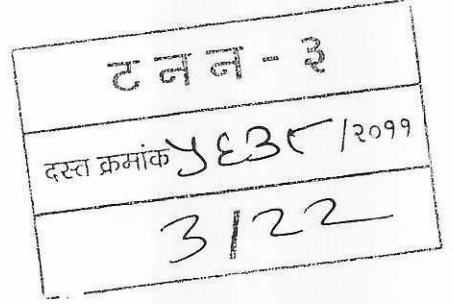 ट न न - ३
दस्त क्रमांक ५६३८/२०११
3/22